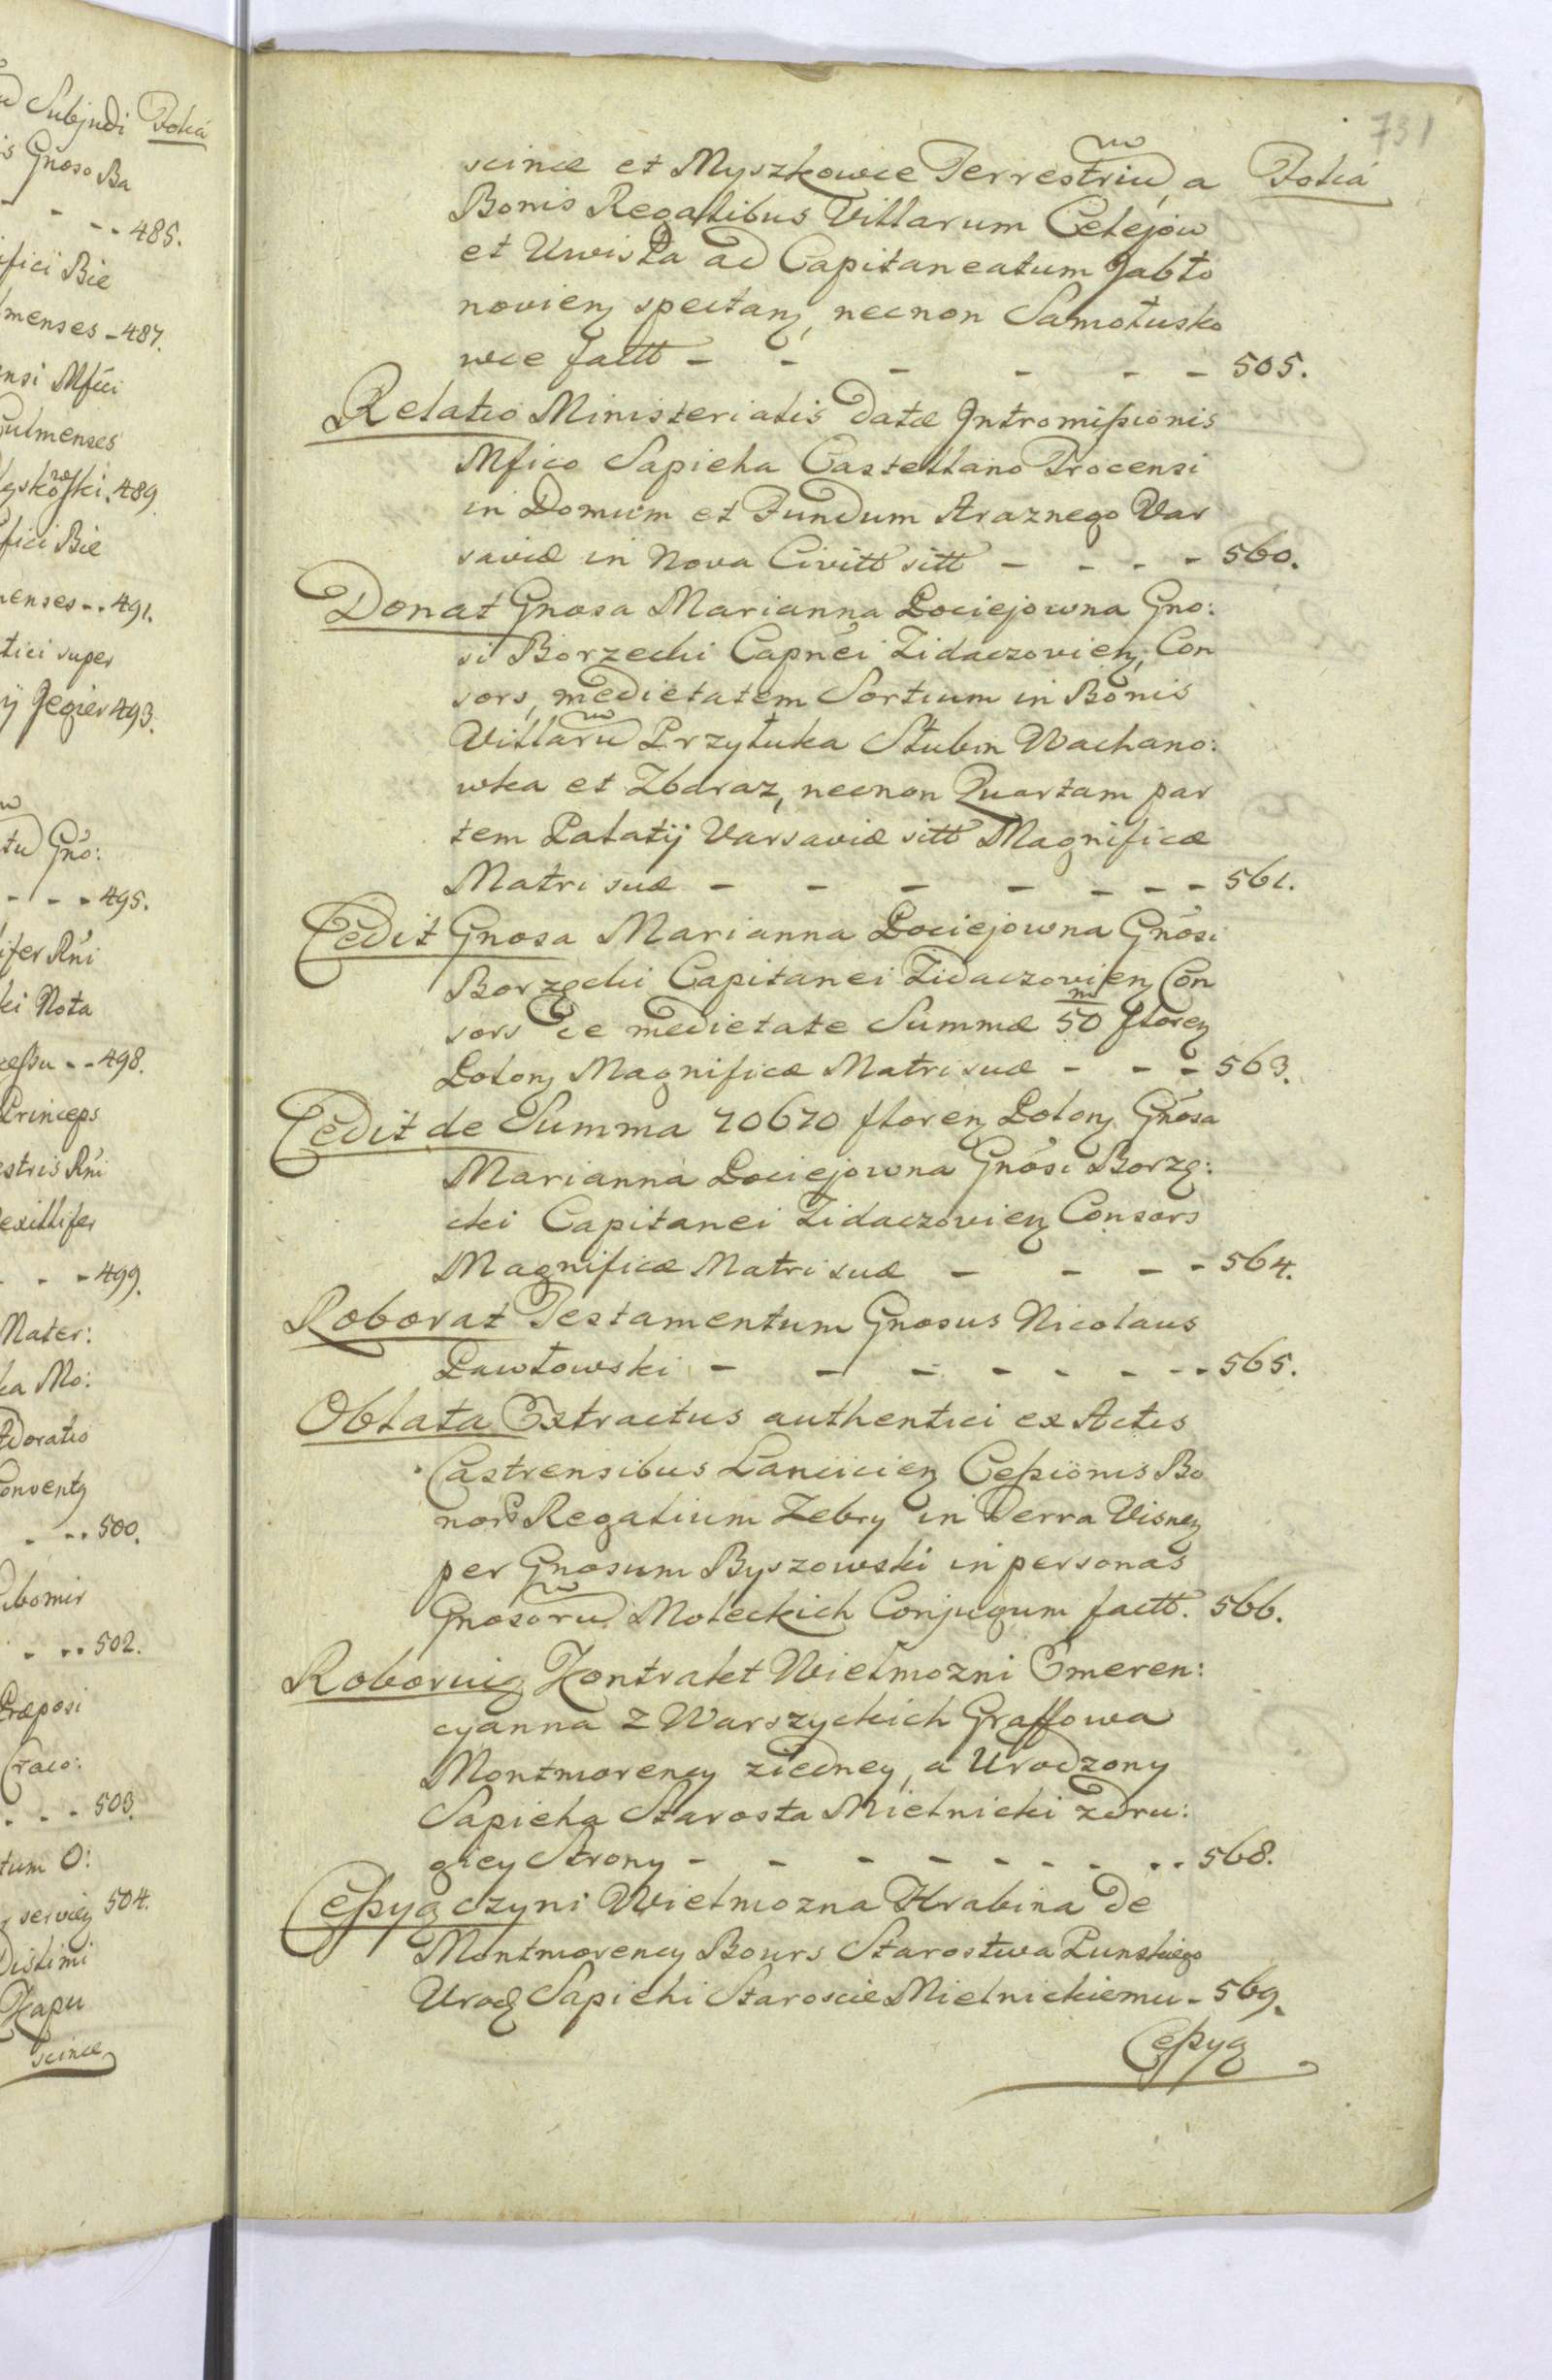 u Subjudi Folia
is Gnoso Ba
- - - 485.
ifici Bie
lmenses - 487.
ensi Mfici
Culmenses
489.
fici Bie
menses - - 491.
tici super
ij Jezier 493.
tu Gno:
- - - 495.
ifer Rni
ki Nota
cessu - - 498.
Princeps
estris Rni
Vexillifer
- - - 499.
Mater:
ka Mo:
Adoratio
Conventz
- - - 500.
Lubomir
- - - 502.
Præposi
Craco:
- - - 503.
tum O:
504.
Kapu
scince
731
scince et Myszkowce Terrestriū, a Folia
Bonis Regalibus Villarum Celejow
et Uwista ad Capitaneatum Jabło
novienz spectanz, necnon Samołusko
wce factt - - - - - - 505.
Relatio Ministerialis datæ Intromissionis
Mfico Sapieha Castellano Trocensi
in Domum et Fundum Araznego Var
saviæ in Nova Civitt sitt - - - - 560.
Donat Gnosa Marianna Pociejowna Gno:
si Borzecki Capnei Zidaczovienz, Con
sors, medietatem Sortium in Bonis
Villarū Przytuka Stubin Wachano:
wka et Zbdraz, necnon Quartam par
tem Palatij Varsaviæ sitt Magnificæ
Matri suæ - - - - - - - 561.
Cedit Gnosa Marianna Pociejowna Gnosi
Borzęcki Capitanei Zidaczovienz Con
sors de medietate Summæ 50/m florenz
Polonz Magnificæ Matri suæ - - - 563.
Cedit de Summa 20620 florenz Polonz Gnosa
Marianna Pociejowna Gnosi Borzę:
cki Capitanei Zidaczovienz Consors
Magnificæ Matri suæ - - - - 564.
Roborat Testamentum Gnosus Nicolaus
Pawłowski - - - - - - - - 565.
Oblata Extractus authentici ex Actis
Castrensibus Lancicienz Cessionis Bo
nor Regalium Zebry in Terra Visnenz
per Gnosum Byszowski in personas
Gnosorū Moleckich Conjugum factt. 566.
Roboruią Kontrakt Wielmozni Emeren:
cyanna z Warszyckich Graffowa
Montmorency ziedney, a Urodzony
Sapieha Starosta Mielnicki zdru:
giey Strony - - - - - - - - 568.
Cessyą czyni Wielmozna Hrabina de
Montmorency Bours Starostwa Punskiego
Urodz Sapiehi Staroscie Mielnickiemu - 569.
Cessyą